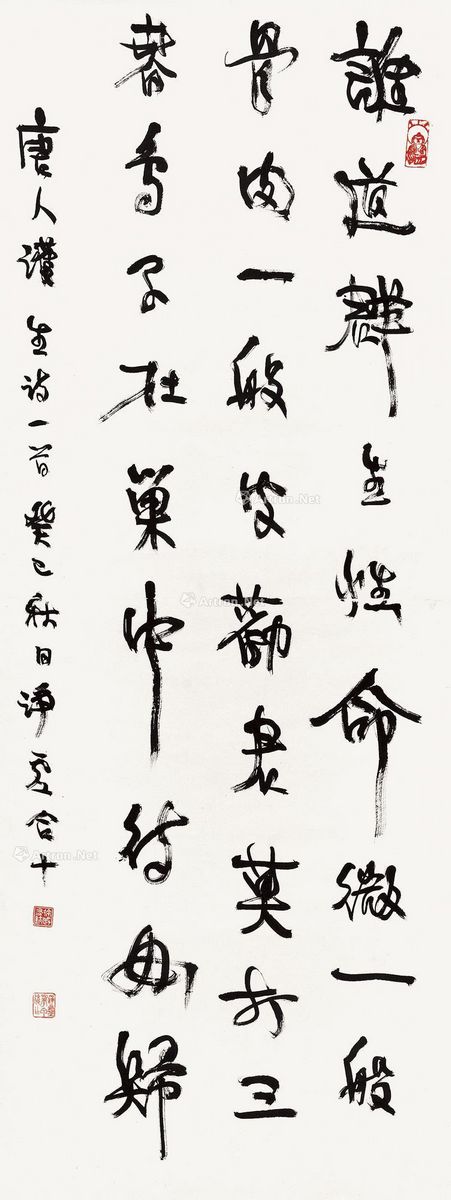 誰道群生性命微一般
骨肉一般皮勸君莫打三
春鳥子在巢中待母歸
唐人護生詩一首癸巳秋日淨合十
Artron.Net
Artron.Net
Artron.Net